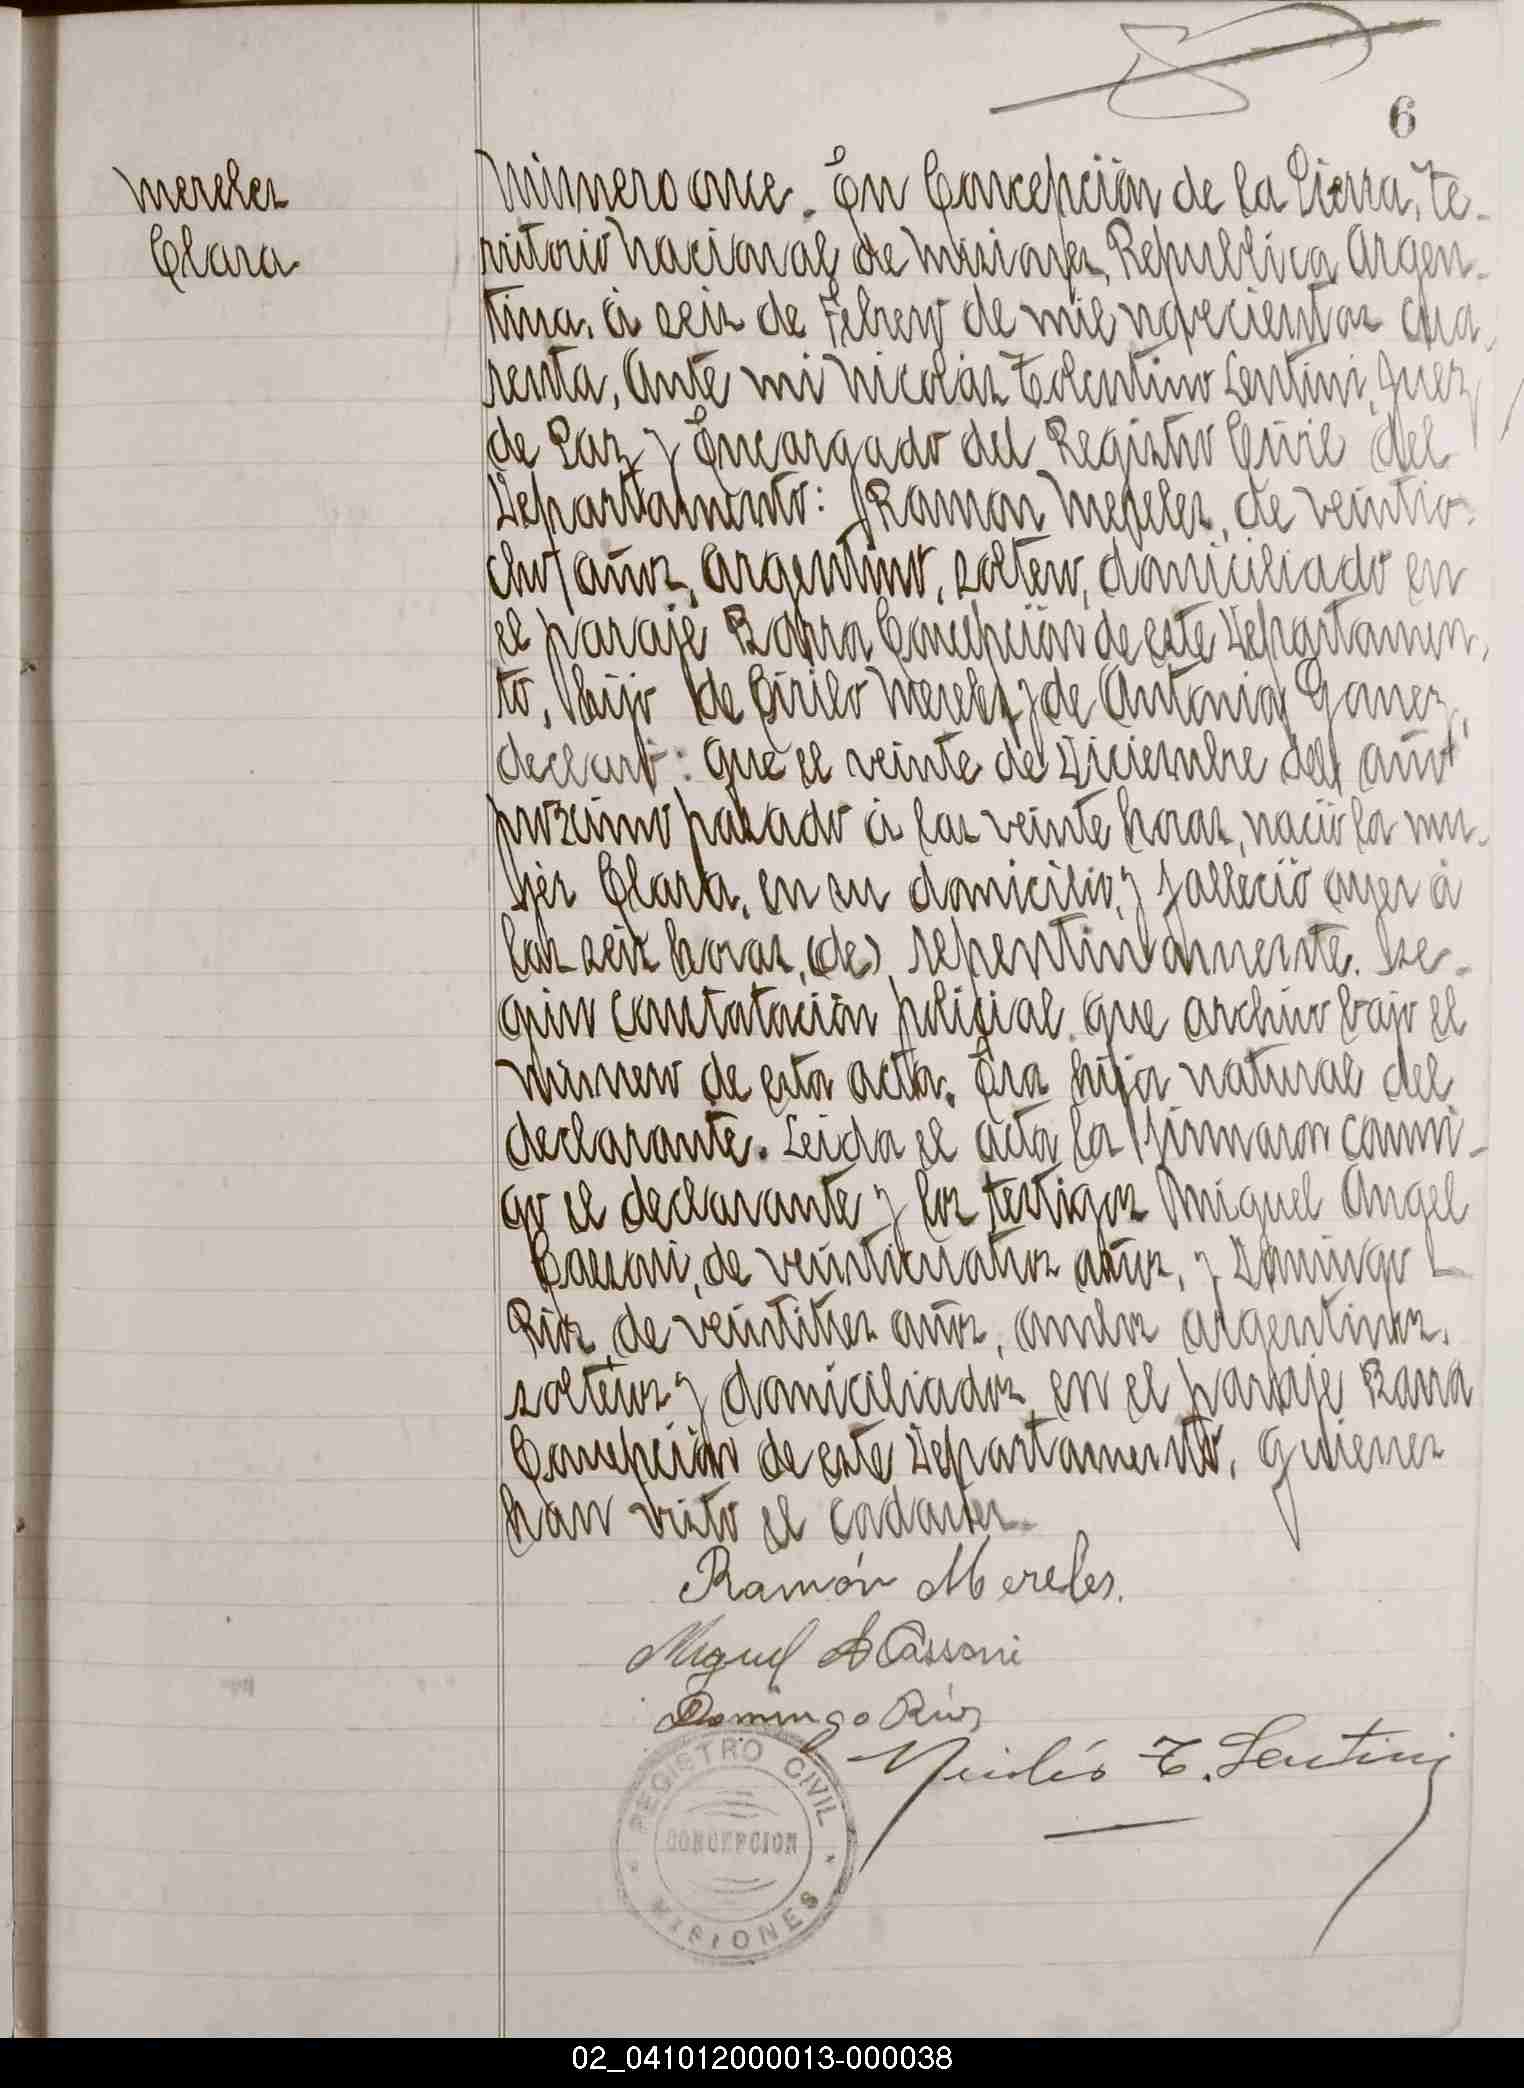 6
Mereles
Clara
Número once. En Concepción de la Sierra, Te-
rritorio Nacional de Misiones, República Argen-
tina, á seis de Febrero de mil novecientos cua-
renta, Ante mi Nicolás Tolentino Lentini, Juez
de Paz y Encargado del Registro Civil del
Departamento: Ramon Mereles, de veintio-
cho años, argentino, soltero, domiciliado en
el paraje Barra Concepción de este Departamen-
to, hijo de Cirilo Mereles y de Antonia Gomez,
declaró: que el veinte de Diciembre del año
proximo pasado á las veinte horas, nació la mu-
jer Clara, en su domicilio, y falleció ayer á
las seis horas, (de) repentinamente. Se-
gún constatación policial que archivo bajo el
número de esta acta. Era hija natural del
declarante. Leida el acta la firmaron conmi-
go el declarante y los testigos Miguel Angel
Cassoni, de veinticuatro años, y Domingo
Ríos, de veintitres años, ambos argentinos,
solteros y domiciliados en el paraje Barra
Concepción de este Departamento, quienes
han visto el cadaver.
Ramón Mereles.
Miguel A Cassoni
Domingo Ríos
Nicolás T. Lentini
REGISTRO CIVIL
CONCEPCION
MISIONES
02_041012000013-000038